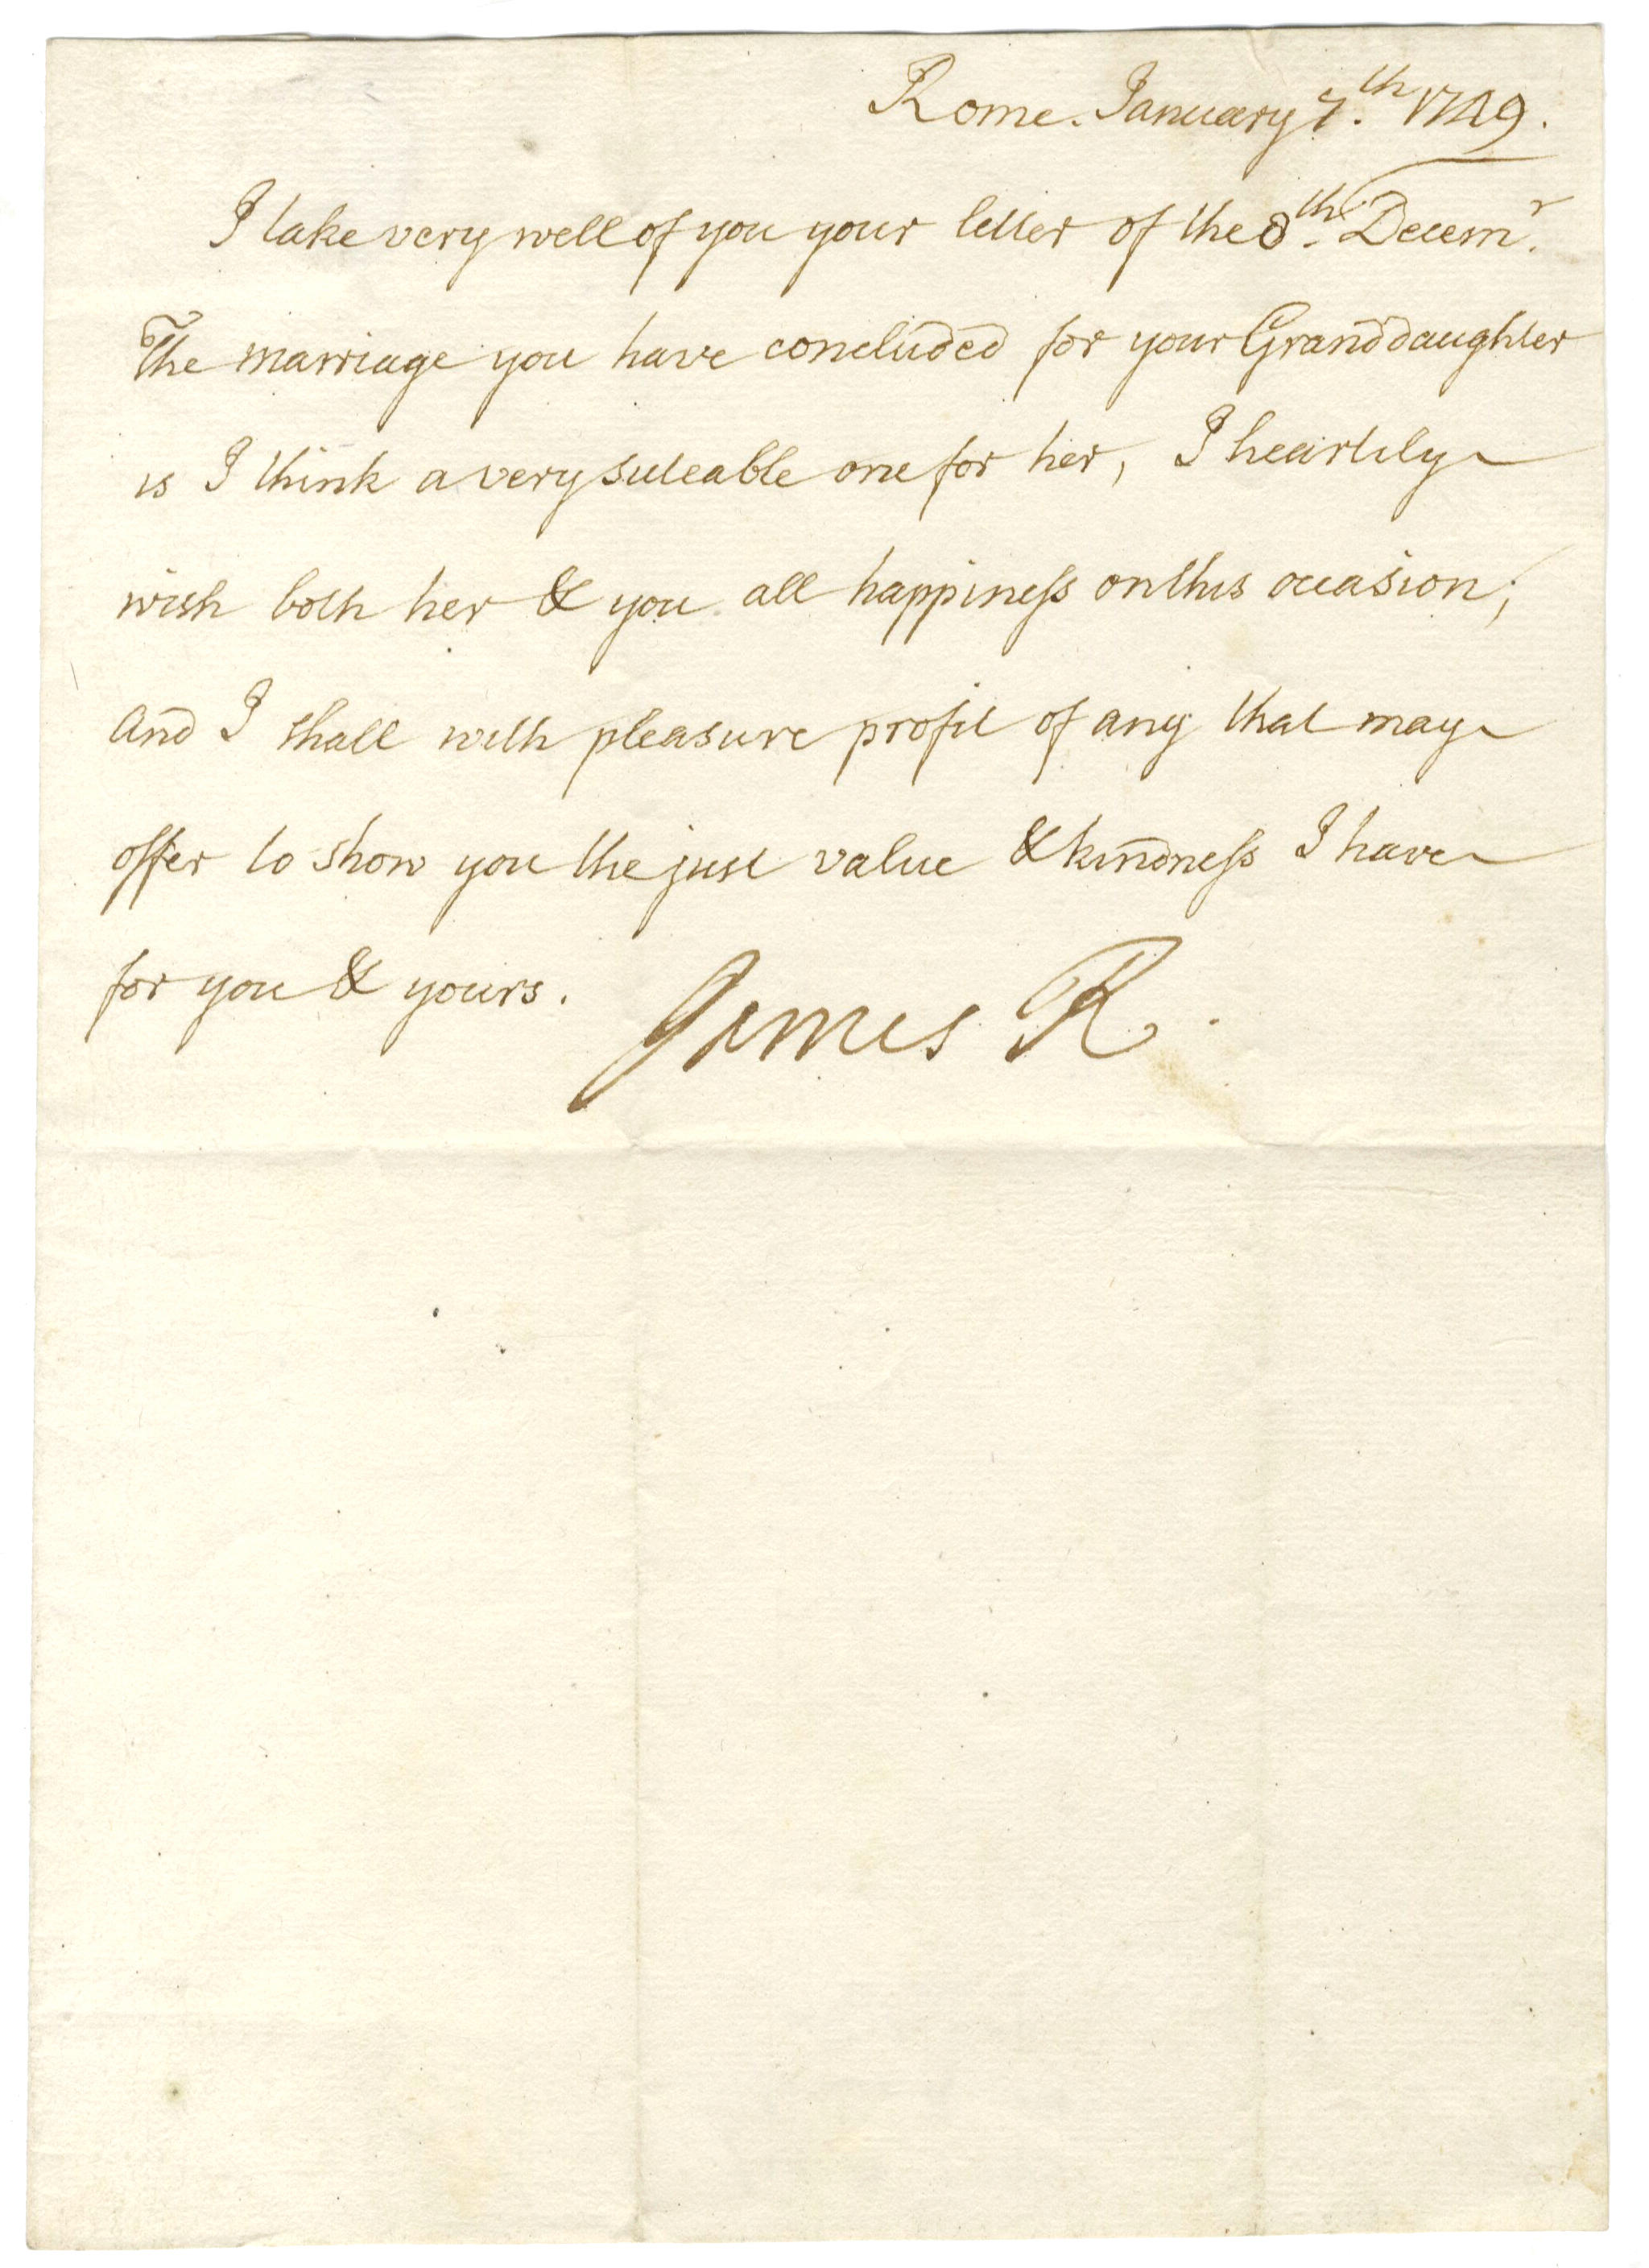 Rome. January 7.th 1749.
I take very well of you your letter of the 8.th Decem.r
The marriage you have concluded for your Granddaughter
is I think a very suteable one for her, I heartily
wish both her & you all happiness on this occasion;
and I shall with pleasure profit of any that may
offer to show you the just value & kindness I have
for you & yours.
James R.